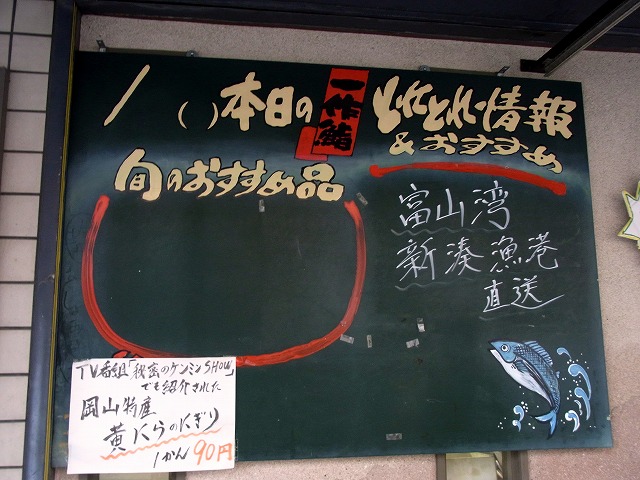 / ( ) 本日の
一作鮨
とれとれ情報
&おすすめ
旬のおすすめ品
富山湾
新湊漁港
直送
TV番組「秘密のケンミンSHOW」
でも紹介された
岡山特産
黄にらのにぎり
1かん 90円